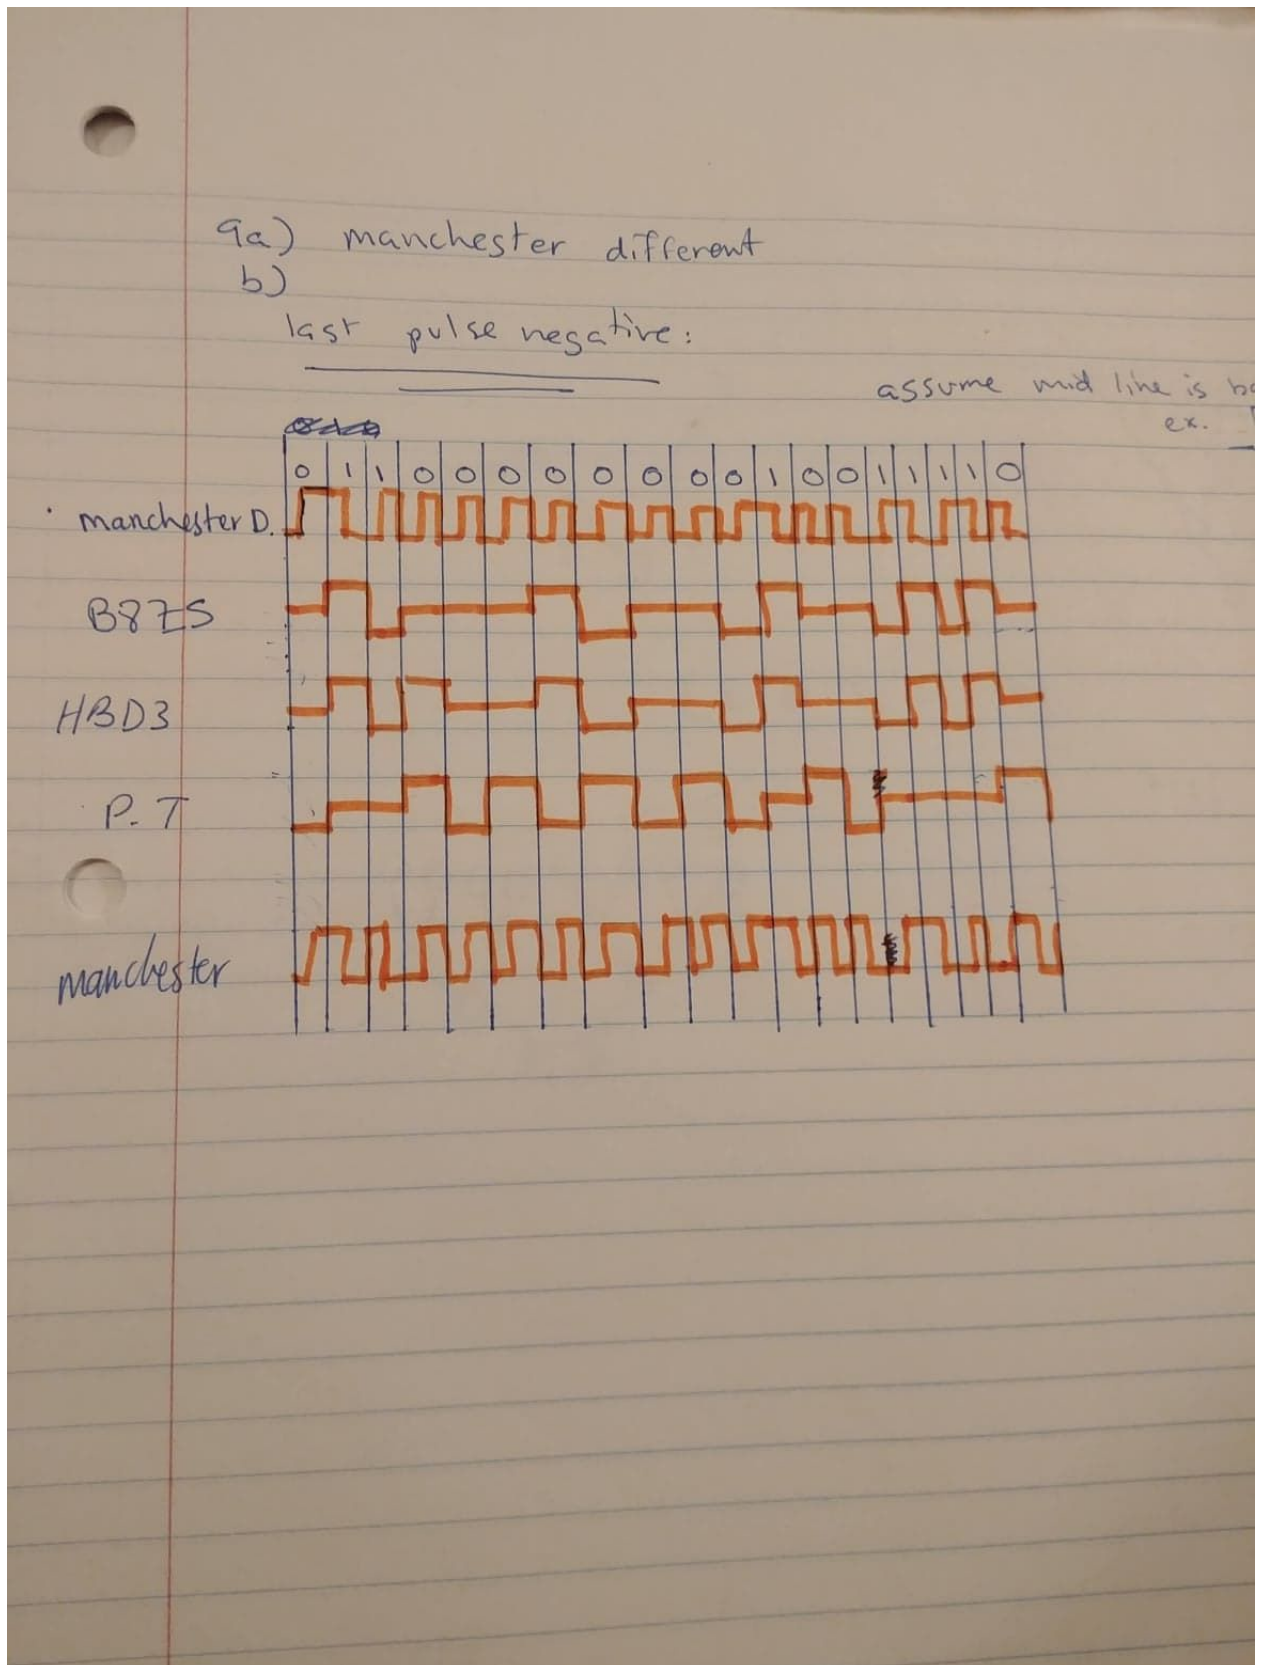 9a) manchester different
b)
last pulse negative:
assume mid line is
ex.
0 1 1 0 0 0 0 0 0 0 0 1 0 0 1 1 1 1 0
manchester D.
B8ZS
HBD3
P-T
manchester